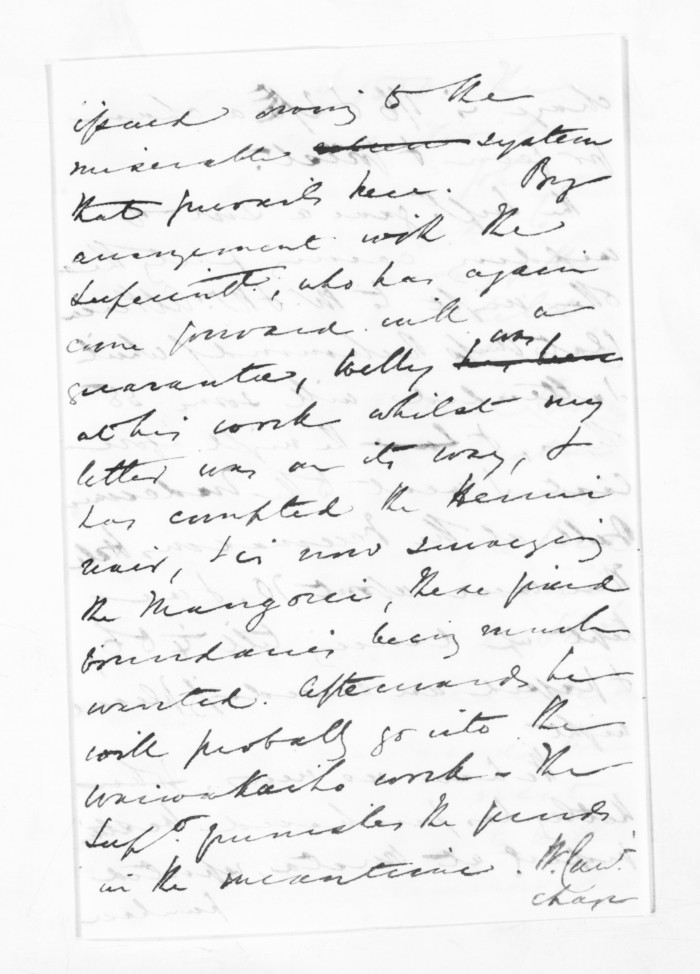 issued owing to the
miserable system
that prevails here. By
arrangement with the
Superintt, who has again
come forward with a
guarantee, Welby was
at his work whilst my
letter was on its way, &
has completed the Henui
, & is now surveying
the Mangorei, these fixed
boundaries being much
wanted. Afterwards he
will probably go into the
Waiwakaiho work – The
Supt. furnishes the funds
in the meantime.
chap